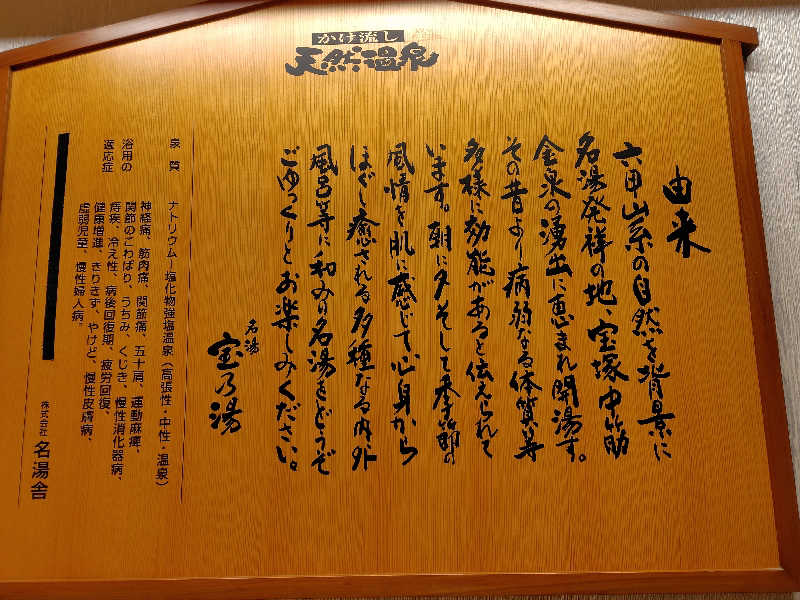 かけ流し
天然温泉
由来
六甲山系の自然を背景に
名湯発祥の地、宝塚中筋
金泉の湧出に恵まれ開湯す。
その昔より病弱なる体質等
多様に効能があると伝えられて
います。朝に夕そして季節の
風情を肌に感じて心身から
ほぐし癒される多種なる内外
風呂等に和み名湯をどうぞ
ごゆっくりとお楽しみください。
名湯
宝乃湯
泉質 ナトリウム-塩化物強塩温泉(高張性・中性・温泉)
浴用の
適応症
神経痛、筋肉痛、関節痛、五十肩、運動麻痺、
関節のこわばり、うちみ、くじき、慢性消化器病、
痔疾、冷え性、病後回復期、疲労回復、
健康増進、きりきず、やけど、慢性皮膚病、
虚弱児童、慢性婦人病。
株式会社 名湯舎